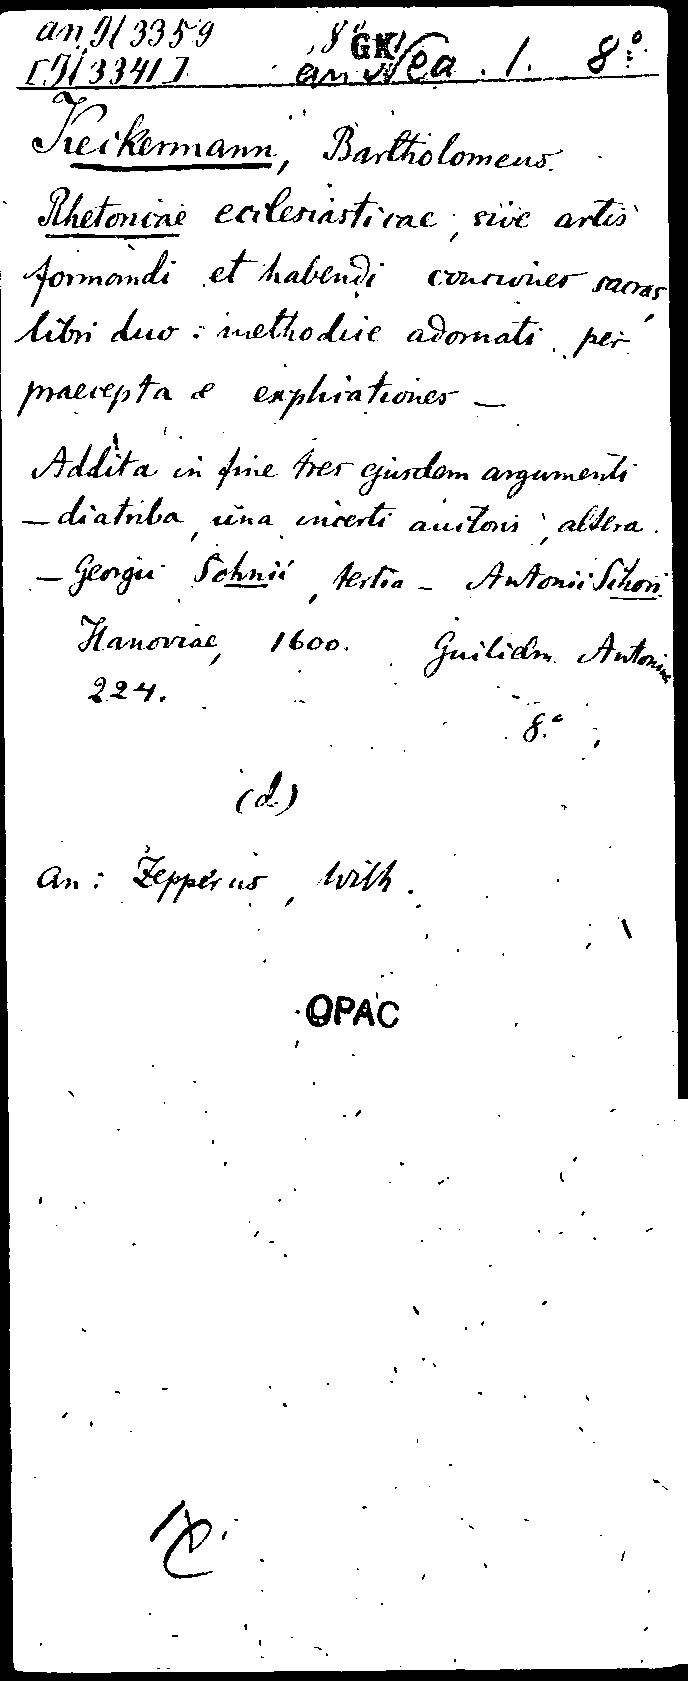 an 9/3359 8° GK
[9/3341] an Nea. 1. 8°
Keckermann, Bartholomeus.
Rhetoricae ecclesiasticae, sive artis
formandi et habendi conciones sacras,
libri duo: methodice adornati per
praecepta & explicationes —
Addita in fine tres ejusdem argumenti
— diatriba, una incerti auctoris, altera
— Georgii Sohnii, tertia — Antonii Schori
Hanoviae, 1600. Guilielm. Antonius
224.
8.°
(d.)
an: Zepperus, Wilh.
OPAC